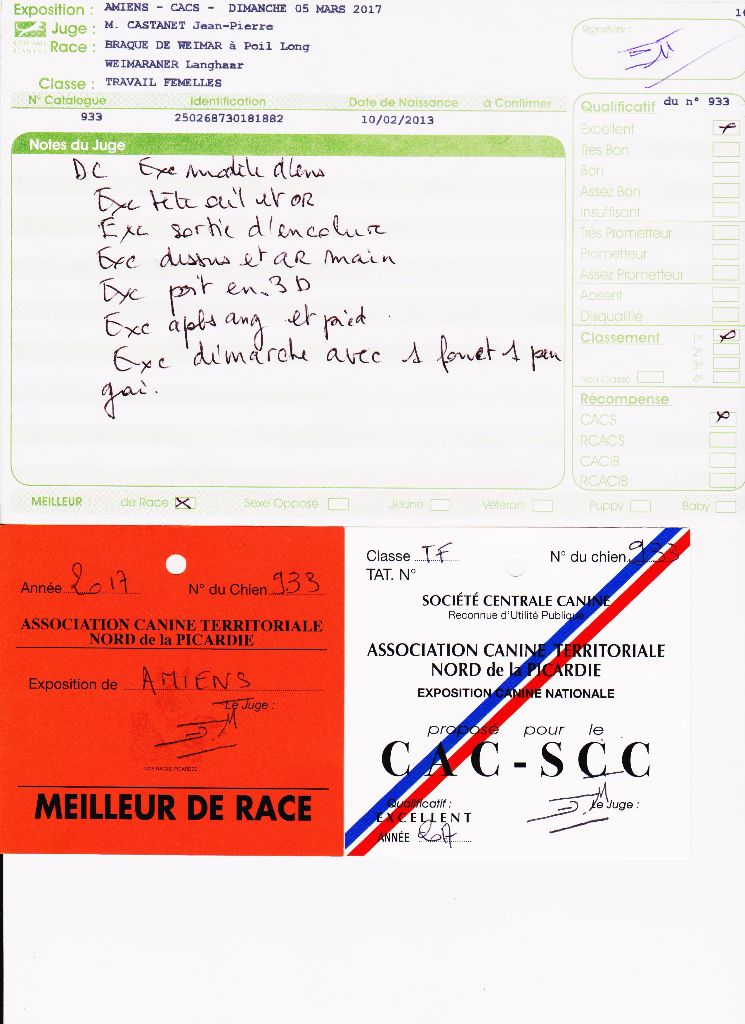 Exposition : AMIENS - CACS - DIMANCHE 05 MARS 2017
Juge : M. CASTANET Jean-Pierre
Race : BRAQUE DE WEIMAR à Poil Long
WEIMARANER Langhaar
Classe : TRAVAIL FEMELLES
Signature :
N° Catalogue Identification Date de Naissance à Confirmer
933 250268730181882 10/02/2013
Notes du Juge
DC Exc modèle d'lens
Exc tête œil et OR
Exc sortie d'encolure
Exc dessus et AR main
Exc port en 3D
Exc aplbs ang et pied.
Exc démarche avec 1 fouet 1 peu
gai.
Qualificatif du n° 933
Excellent
Très Bon
Bon
Assez Bon
Insuffisant
Très Prometteur
Prometteur
Assez Prometteur
Absent
Disqualifié
Classement 1°
2°
3°
Non Classé 4°
Récompense
CACS
RCACS
CACIB
RCACIB
MEILLEUR : de Race Sexe Opposé Jeune Vétéran Puppy Baby
Année 2017 N° du Chien 933
ASSOCIATION CANINE TERRITORIALE
NORD de la PICARDIE
Exposition de AMIENS
Le Juge :
MEILLEUR DE RACE
Classe TF N° du chien 933
TAT. N°
SOCIÉTÉ CENTRALE CANINE
Reconnue d'Utilité Publique
ASSOCIATION CANINE TERRITORIALE
NORD de la PICARDIE
EXPOSITION CANINE NATIONALE
proposé pour le
CAC-SCC
Qualificatif :
EXCELLENT
Le Juge :
ANNÉE 2017